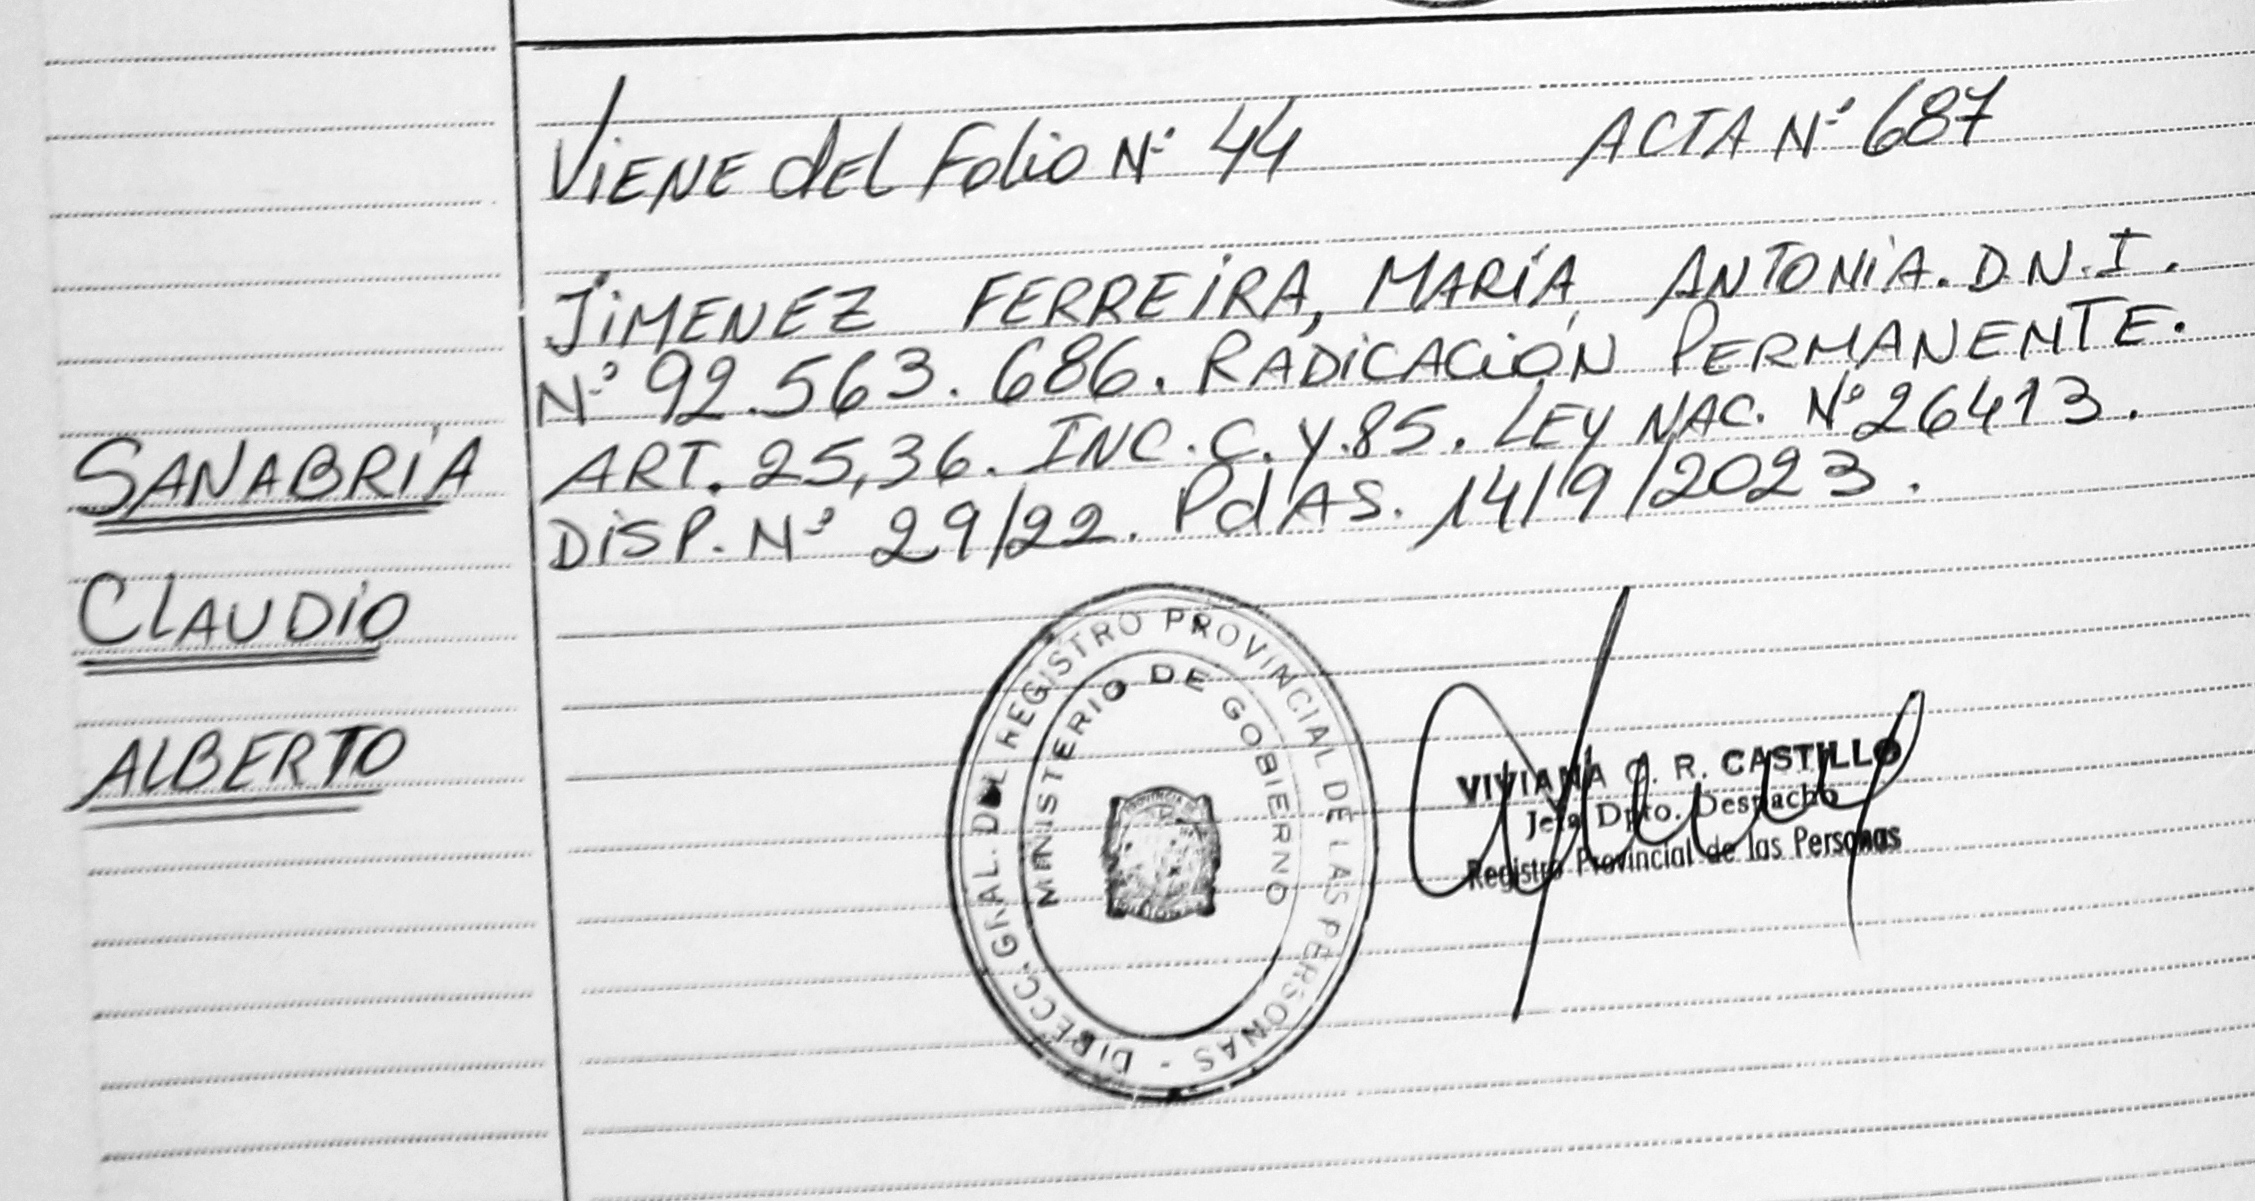 Viene del Folio Nº 44 ACTA Nº 687
JIMENEZ FERREIRA, MARÍA ANTONIA. D.N.I.
Nº 92.563.686. RADICACIÓN PERMANENTE.
ART. 25,36. INC. C. Y. 85. LEY NAC. Nº 26413.
DISP. Nº 29/22. PdAS. 14/9/2023.
SANABRIA
CLAUDIO
ALBERTO
DIRECC. GRAL. DEL REGISTRO PROVINCIAL DE LAS PERSONAS -
MINISTERIO DE GOBIERNO
VIVIANA C. R. CASTILLO
Jefa Dpto. Despacho
Registro Provincial de las Personas